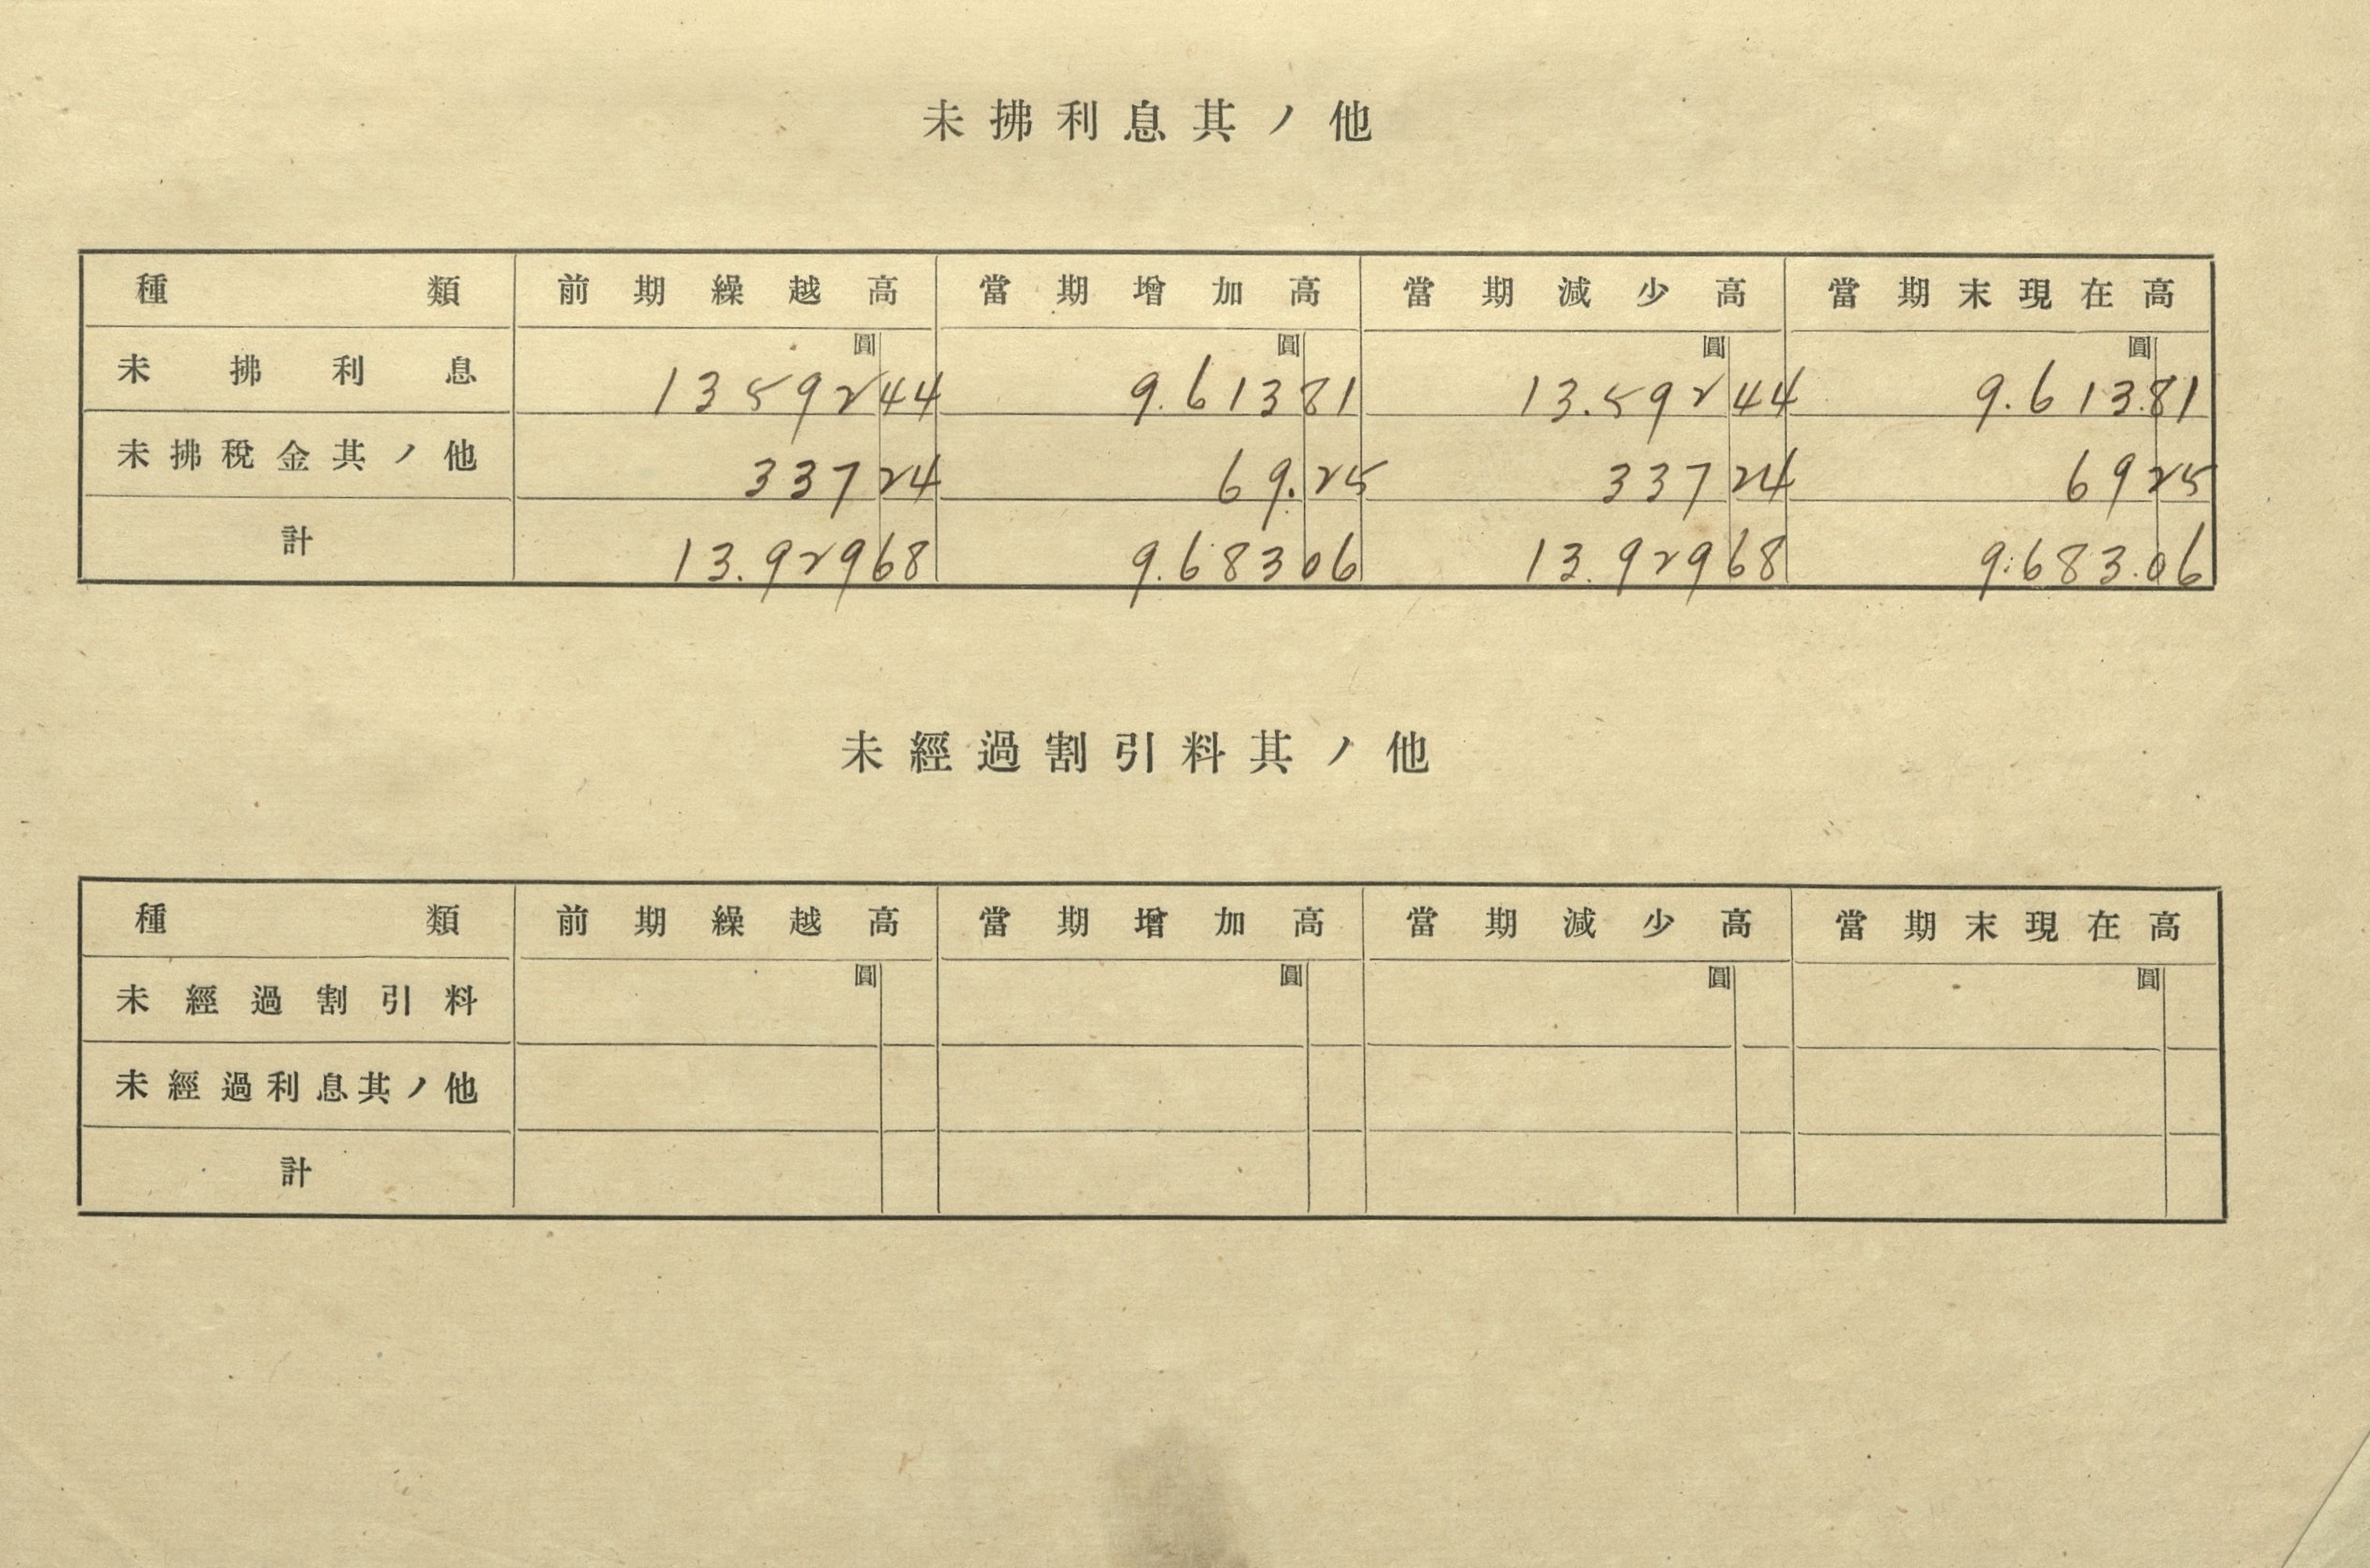 未拂利息其ノ他
種類 前期繰越高 當期增加高 當期減少高 當期末現在高
圓 圓 圓 圓
未拂利息 1359244 9.61381 13.59244 9.613.81
未拂稅金其ノ他 33724 69.25 33724 6925
計 13.92968 9.68306 13.92968 9.683.06
未經過割引料其ノ他
種類 前期繰越高 當期增加高 當期減少高 當期末現在高
圓 圓 圓 圓
未經過割引料
未經過利息其ノ他
計